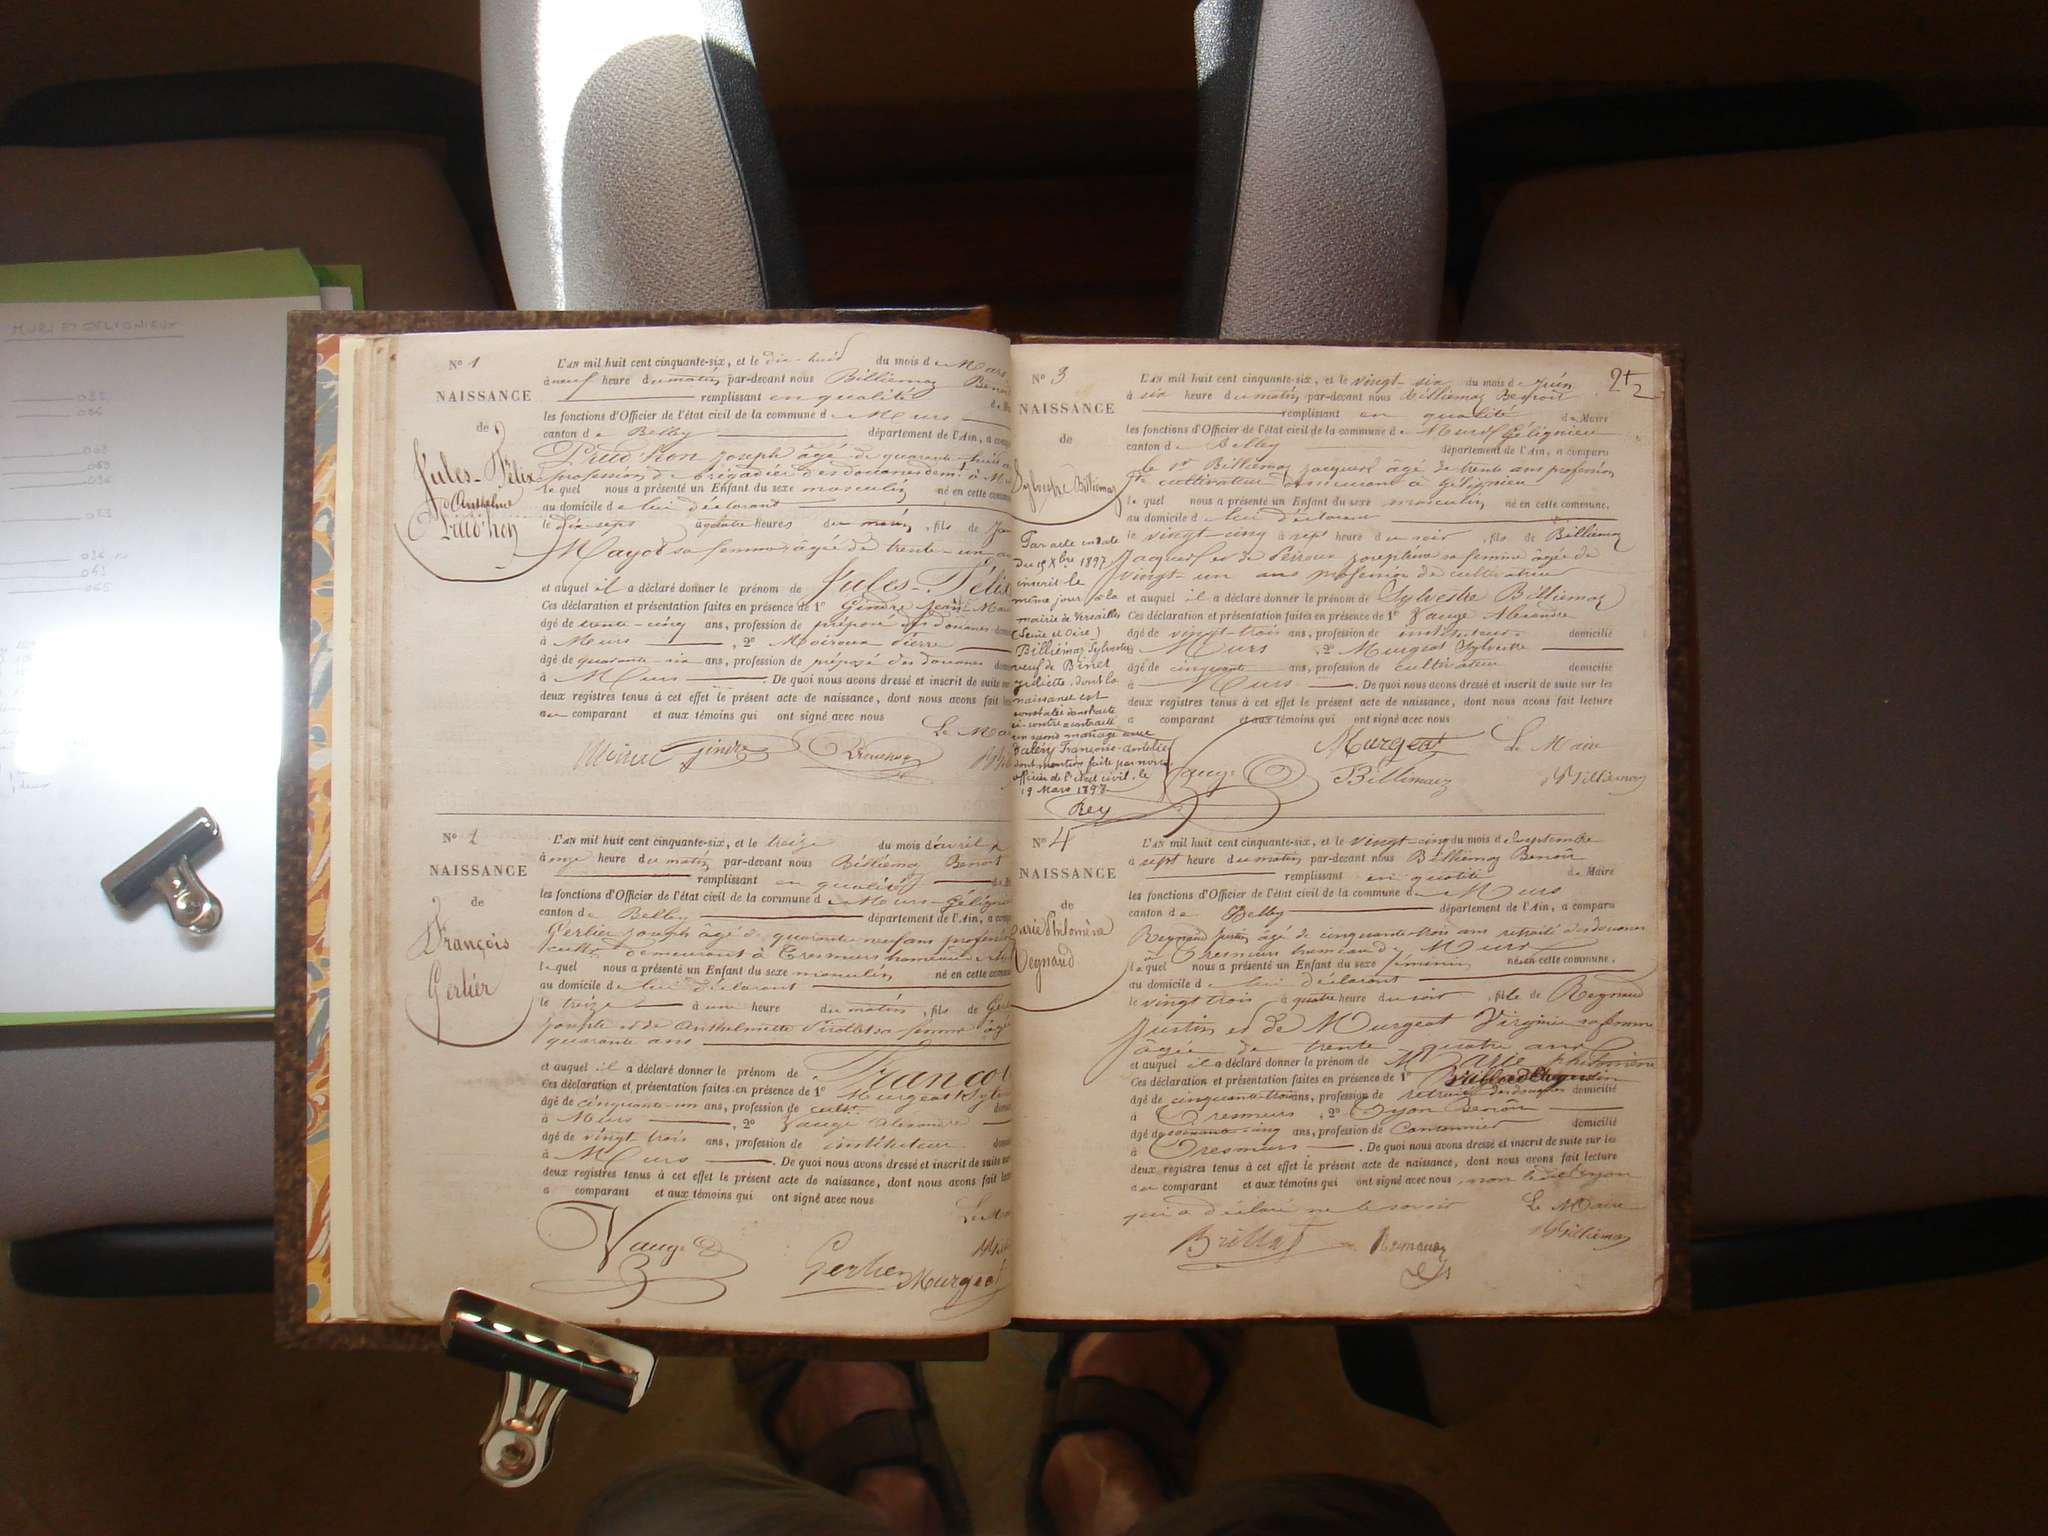 MURS ET GELIGNIEUX
N° 1
NAISSANCE
de
Jules-Félix
d'Anthelme
Prud'hon
L'AN mil huit cent cinquante-six, et le dix-huit du mois de Mars
à neuf heure du matin par-devant nous Billiemaz Benoit
remplissant en qualité
les fonctions d'Officier de l'état civil de la commune de Murs
canton de Belley département de l'Ain, a comp
Prud'hon Joseph âgé de quarante-huit a
profession de brigadier des douanes à M
lequel nous a présenté un Enfant du sexe masculin né en cette comm
au domicile de lui déclarant
le dix-sept à quatre heures du matin, fils de
Mayot sa femme âgée de trente-un a
et auquel il a déclaré donner le prénom de Jules-Félix
Ces déclaration et présentation faites en présence de 1° Gindre Jean
âgé de trente-cinq ans, profession de préposé des douanes
à Murs, 2° Moiroux Pierre
âgé de quarante-six ans, profession de préposé des douanes
à Murs. De quoi nous avons dressé et inscrit de suite
deux registres tenus à cet effet le présent acte de naissance, dont nous avons fait
au comparant et aux témoins qui ont signé avec nous
Le Ma
Gindre
N° 2
NAISSANCE
de
François
Gerlier
L'AN mil huit cent cinquante-six, et le treize du mois d'avril
heure du matin par-devant nous Billiemaz Benoit
remplissant en qualité
les fonctions d'Officier de l'état civil de la commune de Murs-Gélignieu
canton de Belley département de l'Ain, a comp
Gerlier Joseph âgé de quarante neuf ans profession
cultr demeurant à Cresmurs hameau de
lequel nous a présenté un Enfant du sexe masculin né en cette commune
au domicile de lui déclarant
le treize à une heure du matin, fils de
Joseph et de Anthelmette sa femme âgée
quarante ans
et auquel il a déclaré donner le prénom de Francois
Ces déclaration et présentation faites en présence de 1° Murgeat Sylve
âgé de cinquante-un ans, profession de cultr
à Murs, 2° Vauge Alexandre
âgé de vingt trois ans, profession de instituteur
à Murs. De quoi nous avons dressé et inscrit de suite
deux registres tenus à cet effet le présent acte de naissance, dont nous avons fait
au comparant et aux témoins qui ont signé avec nous
Vauge
Gerlier Murgeat
2
N° 3
NAISSANCE
de
Sylvestre Billiemaz
L'AN mil huit cent cinquante-six, et le vingt-six du mois de Juin
à six heure du matin par-devant nous Billiemaz Benoit
remplissant en qualité de Maire
les fonctions d'Officier de l'état civil de la commune de Murs Gélignieu
canton de Belley département de l'Ain, a comparu
le Sr Billiemaz Jacques âgé de trente ans profession
de cultivateur demeurant à Gélignieu
lequel nous a présenté un Enfant du sexe masculin né en cette commune,
au domicile de lui déclarant
le vingt-cinq à sept heure du soir, fils de Billiemaz
Jacques et de Perroux Josephine sa femme âgée de
vingt-un ans profession de cultivateur
et auquel il a déclaré donner le prénom de Sylvestre Billiemaz
Ces déclaration et présentation faites en présence de 1° Vauge Alexandre
âgé de vingt-trois ans, profession de instituteur domicilié
à Murs, 2° Murgeat Sylvestre
âgé de cinquante ans, profession de cultivateur domicilié
à Murs. De quoi nous avons dressé et inscrit de suite sur les
deux registres tenus à cet effet le présent acte de naissance, dont nous avons fait lecture
au comparant et aux témoins qui ont signé avec nous
Par acte en date
du 15 Xbre 1897
inscrit le
même jour à la
mairie de Versailles
(Seine et Oise)
Billiémaz Sylvestre
veuf de Binet
Juliette, dont la
naissance est
constatée dans l'acte
ci-contre a contracté
un second mariage avec
Françoise-Amélie
dont mention faite par nous
officier de l'état civil, le
19 Mars 1898
Rey
Murgeat Le Maire
Vauge Billiemaz Billiemaz
N° 4
NAISSANCE
de
Marie Philomène
Reynaud
L'AN mil huit cent cinquante-six, et le vingt-cinq du mois de septembre
à sept heure du matin par-devant nous Billiemaz Benoit
remplissant en qualité de Maire
les fonctions d'Officier de l'état civil de la commune de Murs
canton de Belley département de l'Ain, a comparu
Reynaud Justin âgé de cinquante-trois ans retraité des douanes
à Cresmurs hameau de Murs
lequel nous a présenté un Enfant du sexe féminin né en cette commune.
au domicile de lui déclarant
le vingt trois à quatre heure du soir, fille de Reynaud
Justin et de Murgeat Virginie sa femme
âgée de trente quatre ans
et auquel il a déclaré donner le prénom de Marie philomène
Ces déclaration et présentation faites en présence de 1°
âgé de cinquante-trois ans, profession de retraité des douanes domicilié
à Cresmurs, 2° Benoit
âgé de soixante-cinq ans, profession de Cantonnier domicilié
à Cresmurs. De quoi nous avons dressé et inscrit de suite sur les
deux registres tenus à cet effet le présent acte de naissance, dont nous avons fait lecture
au comparant et aux témoins qui ont signé avec nous, non
qui a déclaré ne le savoir
Le Maire
Brillat Reynaud Billiemaz